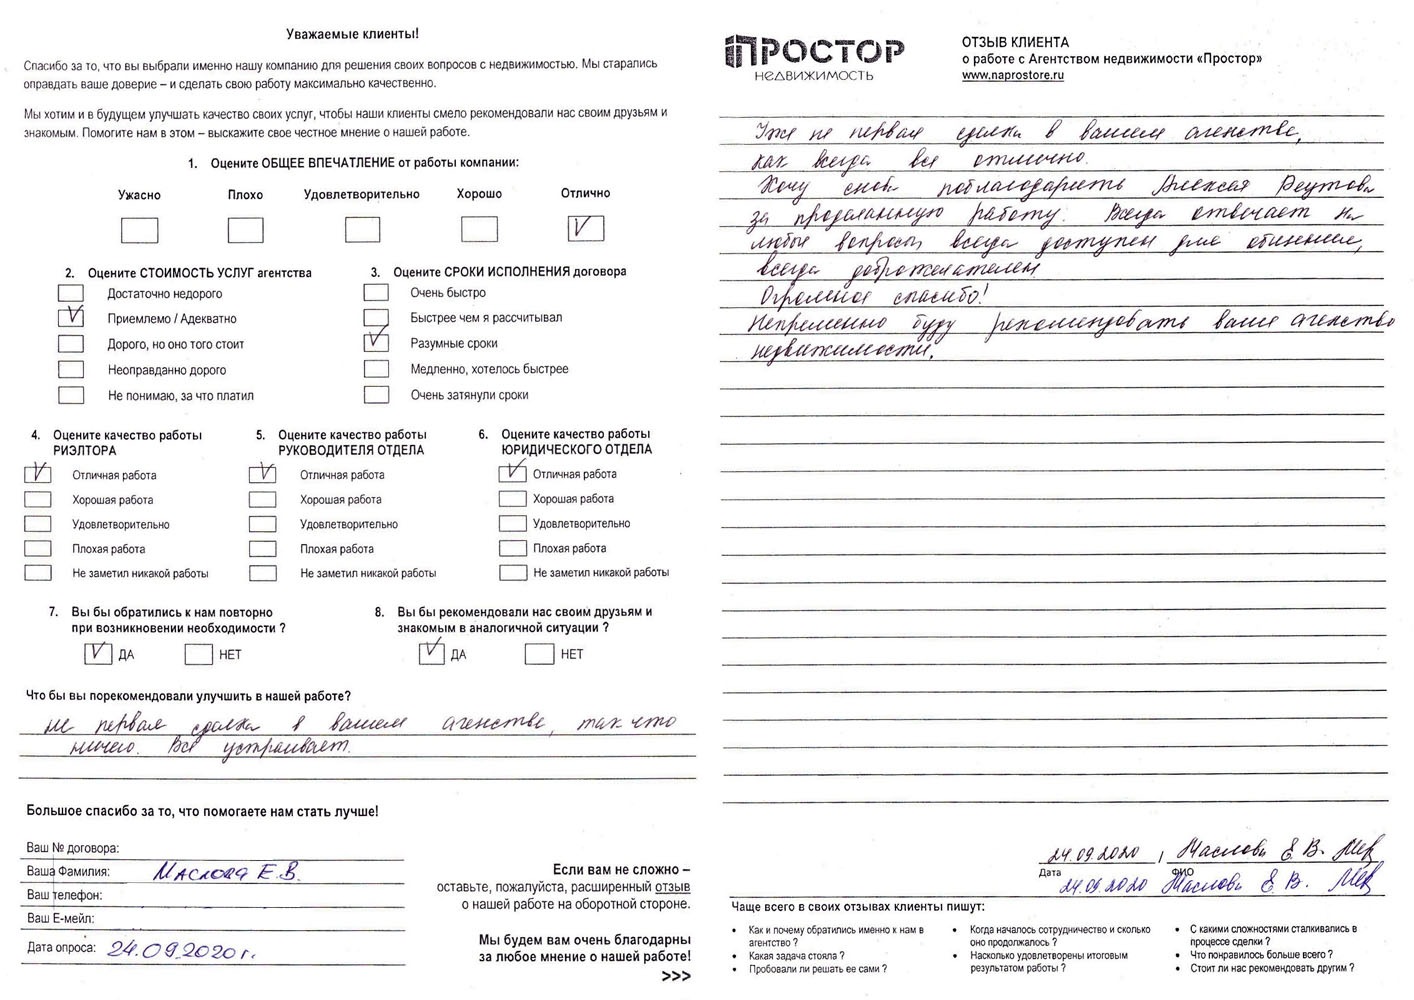 Уважаемые клиенты!
Спасибо за то, что вы выбрали именно нашу компанию для решения своих вопросов с недвижимостью. Мы старались
оправдать ваше доверие – и сделать свою работу максимально качественно.
Мы хотим и в будущем улучшать качество своих услуг, чтобы наши клиенты смело рекомендовали нас своим друзьям и
знакомым. Помогите нам в этом – выскажите свое честное мнение о нашей работе.
1. Оцените ОБЩЕЕ ВПЕЧАТЛЕНИЕ от работы компании:
Ужасно Плохо Удовлетворительно Хорошо Отлично
2. Оцените СТОИМОСТЬ УСЛУГ агентства
Достаточно недорого
Приемлемо / Адекватно
Дорого, но оно того стоит
Неоправданно дорого
Не понимаю, за что платил
3. Оцените СРОКИ ИСПОЛНЕНИЯ договора
Очень быстро
Быстрее чем я рассчитывал
Разумные сроки
Медленно, хотелось быстрее
Очень затянули сроки
4. Оцените качество работы
РИЭЛТОРА
Отличная работа
Хорошая работа
Удовлетворительно
Плохая работа
Не заметил никакой работы
5. Оцените качество работы
РУКОВОДИТЕЛЯ ОТДЕЛА
Отличная работа
Хорошая работа
Удовлетворительно
Плохая работа
Не заметил никакой работы
6. Оцените качество работы
ЮРИДИЧЕСКОГО ОТДЕЛА
Отличная работа
Хорошая работа
Удовлетворительно
Плохая работа
Не заметил никакой работы
7. Вы бы обратились к нам повторно
при возникновении необходимости ?
ДА НЕТ
8. Вы бы рекомендовали нас своим друзьям и
знакомым в аналогичной ситуации ?
ДА НЕТ
Что бы вы порекомендовали улучшить в нашей работе?
не первая сделка в вашем агенстве, так что
ничего. Всё устраивает.
Большое спасибо за то, что помогаете нам стать лучше!
Ваш № договора:
Ваша Фамилия: Маслова Е.В.
Ваш телефон:
Ваш Е-мейл:
Дата опроса: 24.09.2020г.
Если вам не сложно –
оставьте, пожалуйста, расширенный отзыв
о нашей работе на оборотной стороне.
Мы будем вам очень благодарны
за любое мнение о нашей работе!
>>>
ПРОСТОР
НЕДВИЖИМОСТЬ
ОТЗЫВ КЛИЕНТА
о работе с Агентством недвижимости «Простор»
www.naprostore.ru
Уже не первая сделка в вашем агенстве,
как всегда все отлично.
Хочу снова поблагодарить Алексея Реутова
за проделанную работу. Всегда отвечает на
любые вопросы, всегда доступен для общения,
всегда доброжелателен.
Огромное спасибо!
Непременно буду рекомендовать ваше агенство
недвижимости.
24.09.2020 , Маслова Е. В.
Дата ФИО
24.09.2020 Маслова Е. В.
Чаще всего в своих отзывах клиенты пишут:
• Как и почему обратились именно к нам в
агентство ?
• Какая задача стояла ?
• Пробовали ли решать ее сами ?
• Когда началось сотрудничество и сколько
оно продолжалось ?
• Насколько удовлетворены итоговым
результатом работы ?
• С какими сложностями сталкивались в
процессе сделки ?
• Что понравилось больше всего ?
• Стоит ли нас рекомендовать другим ?